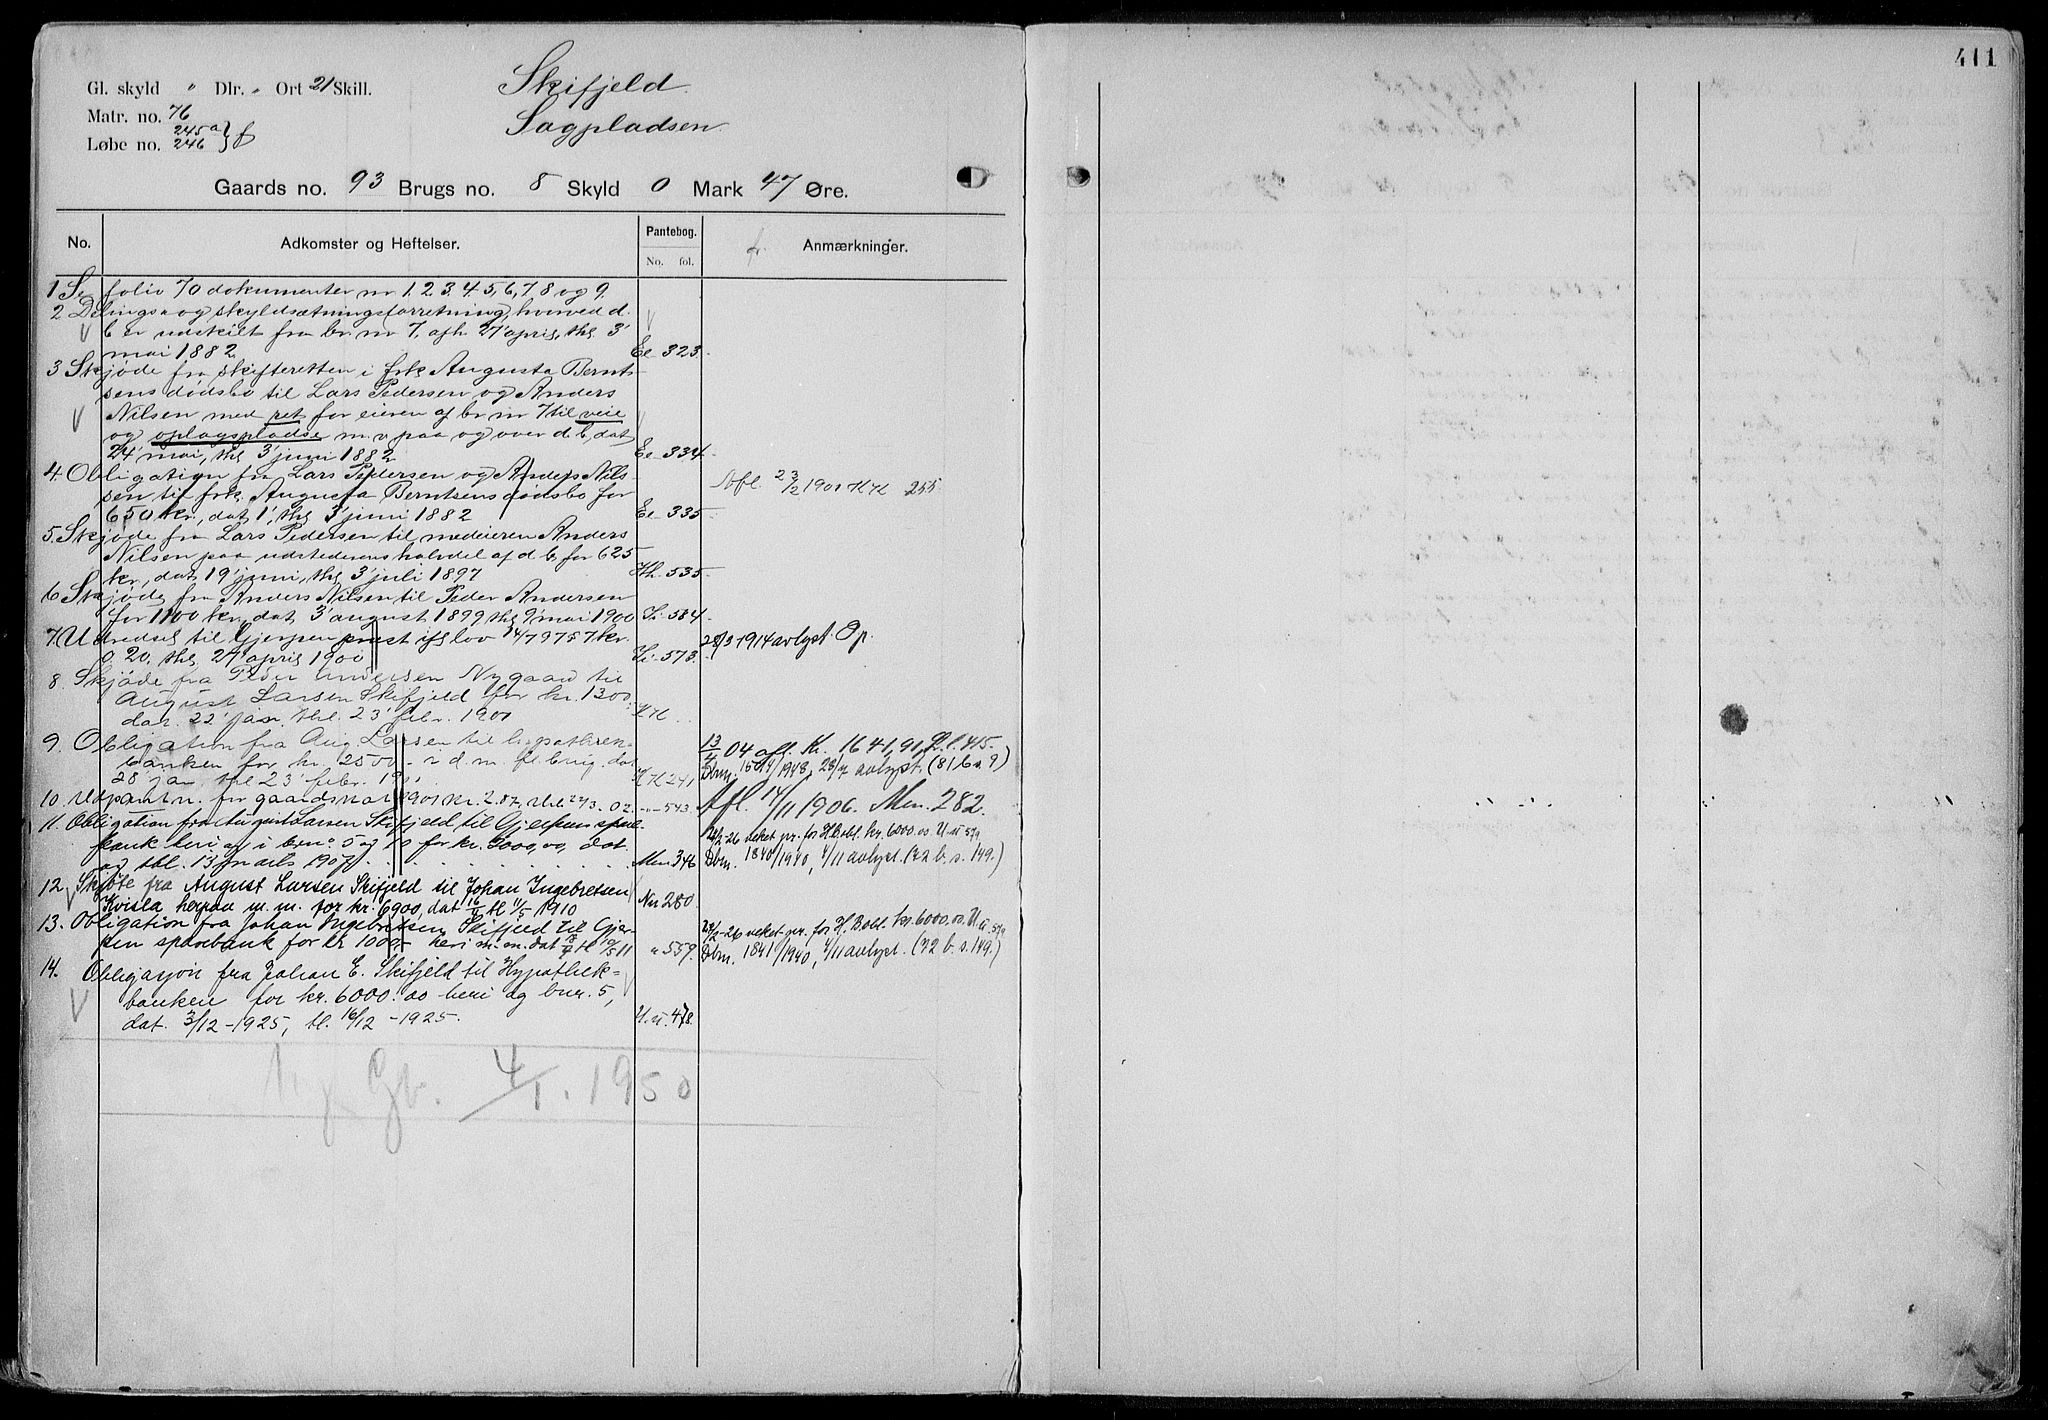 411
Gl. skyld " Dlr. " Ort 21 Skill.
Skifjeld
Matr. no. 76
Sagpladsen
Løbe no. 245a 246 } f
Gaards no. 93 Brugs no. 8 Skyld 0 Mark 47 Øre.
No. Adkomster og Heftelser. Pantebog. No. fol. Anmærkninger.
1 Se folio 70 dokumenter nr 1, 2, 3, 4, 5, 6, 7, 8 og 9.
2 Delings- og skyldsætningsforretning, hvorved d.
b er udskilt fra br. nr 7, afh. 27' april, thl 3'
mai 1882 Ee 323.
3 Skjøde fra skifteretten i frk Augusta Bernt-
sens dødsbo til Lars Pedersen og Anders
Nilsen med ret for eieren af br nr 7 til veie
og oplagspladse m. v paa og over d. b, dat
24' mai, thl 3' juni 1882 Ee 334.
4. Obligation fra Lars Pedersen og Anders Nil-
sen til frk. Augusta Berntsens dødsbo for
650 kr., dat 1', thl 3' juni 1882 Ee 335. Afl. 23/2 1901 KK 255
5. Skjøde fra Lars Pedersen til medeieren Anders
Nilsen paa udstederens halvdel af d b. for 625
kr., dat 19' juni, thl 3' juli 1897 Hh. 535.
6 Skjøde fra Anders Nilsen til Peder Andersen
for 1100 kr., dat 3' august 1899 thl 9' mai 1900 Ii 584
7. Udredsel til Gjerpen prest ifl lov 14/7 97 57 kr.
0. 20. thl 27' april 1900 Ii 573. 28/3 1914 avlyst. Op.
8. Skjøde fra Peder Andersen Nygaard til
August Larsen Skifjeld for kr. 1300,
dat. 22' jan, thl. 23' febr. 1901 KK
9. Obligation fra Aug. Larsen til hypothek-
banken for kr. 2500.- i d. m. fl. brug, dat
28' jan, thl 23' febr. 1901 KK 241
13/4 04 afl. Kr. 1641,91, Ll. 415.
Dbm. 1504/1948, 28/7 avlyst. (81 b s. 9)
10. Udpantn. for gaardskat 1901 kr. 2.87, thl 24/3. 02. -"- 543. Afl. 14/11 1906. Mm. 282.
11. Obligation fra August Larsen Skifjeld til Gjerpens spare-
bank heri og i brno 5 og 10 for kr. 9000,00, dat.
og thl. 13' marts 1907 Mm 346
24/2-26 veket pr. for H.B. obl. kr. 6000.00 U-u 579
Dbm. 1840/1940, 4/11 avlyst. (72 b. s. 149.)
12 Skjøte fra August Larsen Skifjeld til Johan Ingebretsen
Kvisla herpaa m. m. for kr. 6900, dat 16/4 tl 11/5 1910 Nn 280
13. Obligation fra Johan Ingebretsen Skifjeld til Gjer-
pen sparebank for kr 1000,- heri m. m. dat 7/7 tl 10/5 11 " 559.
24/2-26 veket pr. for H. B obl. kr. 6000.00. U. u. 579
Dbm. 1841/1940, 4/11 avlyst. (72 b. s. 149.)
14. Obligasjon fra Johan E. Skifjeld til Hypothek-
banken for kr. 6000.00 heri og bnr. 5,
dat. 3/12-1925, tl. 16/12-1925. U. u. 478.
Gb. 4/1. 1950